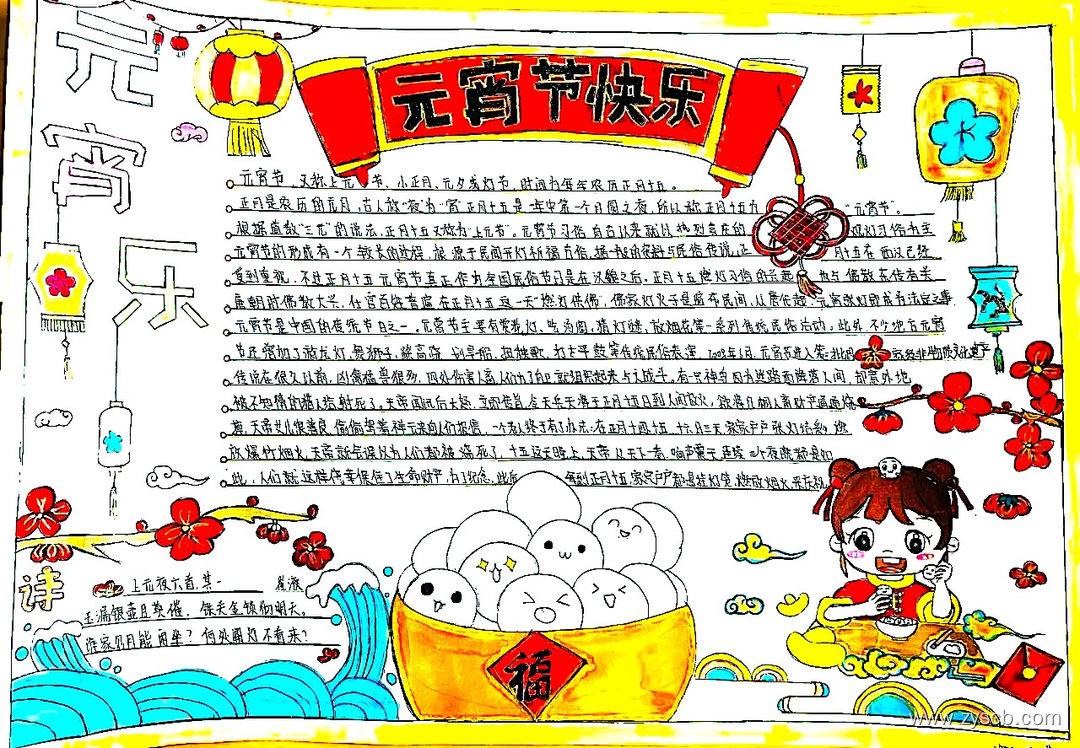 元宵节快乐
元宵乐
元宵节，又称上元节、小正月、元夕或灯节，时间为每年农历正月十五。
正月是农历的元月，古人称"夜"为"宵"正月十五是一年中第一个月圆之夜，所以称正月十五为"元宵节"。
根据道教"三元"的说法，正月十五又称为"上元节"。元宵节习俗自古以来就以热烈喜庆的观灯习俗为主
元宵节的形成有一个较长的过程，根源于民间开灯祈福古俗，据一般的资料与民俗传说，正月十五在西汉已经
受到重视，不过正月十五元宵节真正作为全国民俗节日是在汉魏之后，正月十五燃灯习俗的兴起也与佛教东传有关
唐朝时佛教大兴，仕官百姓普遍在正月十五这一天"燃灯供佛"，佛家灯火于是遍布民间，从唐代起，元宵张灯即成为法定之事
元宵节是中国的传统节日之一，元宵节主要有赏花灯、吃汤圆、猜灯谜、放烟花等一系列传统民俗活动，此外，不少地方元宵
节还增加了游龙灯、舞狮子、踩高跷、划旱船、扭秧歌、打太平鼓等传统民俗表演，2008年6月，元宵节选入第二批国家级非物质文化遗产
传说在很久以前，凶禽猛兽很多，四处伤害人畜，人们为了自卫就组织起来与之战斗。有一只神鸟因为迷路而降落人间，却意外地
被不知情的猎人给射死了。天帝闻讯后大怒，立即传旨，令天兵天将于正月十五日到人间放火，
天帝女儿很善良，偷偷驾着祥云来向人们报信，一个老人终于有了办法，在正月十四、十五、十六日三天，家家户户张灯结彩、燃
放爆竹烟火，天帝就会误以为人们都被烧死了，十五这天晚上，天帝从天下一看，响声震天，连续三个夜晚都是如
此，人们就这样保住了生命财产，为了纪念，此后每到正月十五，家家户户都悬挂灯笼，燃放烟火
诗
上元夜六首·其一 崔液
玉漏银壶且莫催，铁关金锁彻明天。
谁家见月能闲坐？何处闻灯不看来？
福
www.zyscb.com